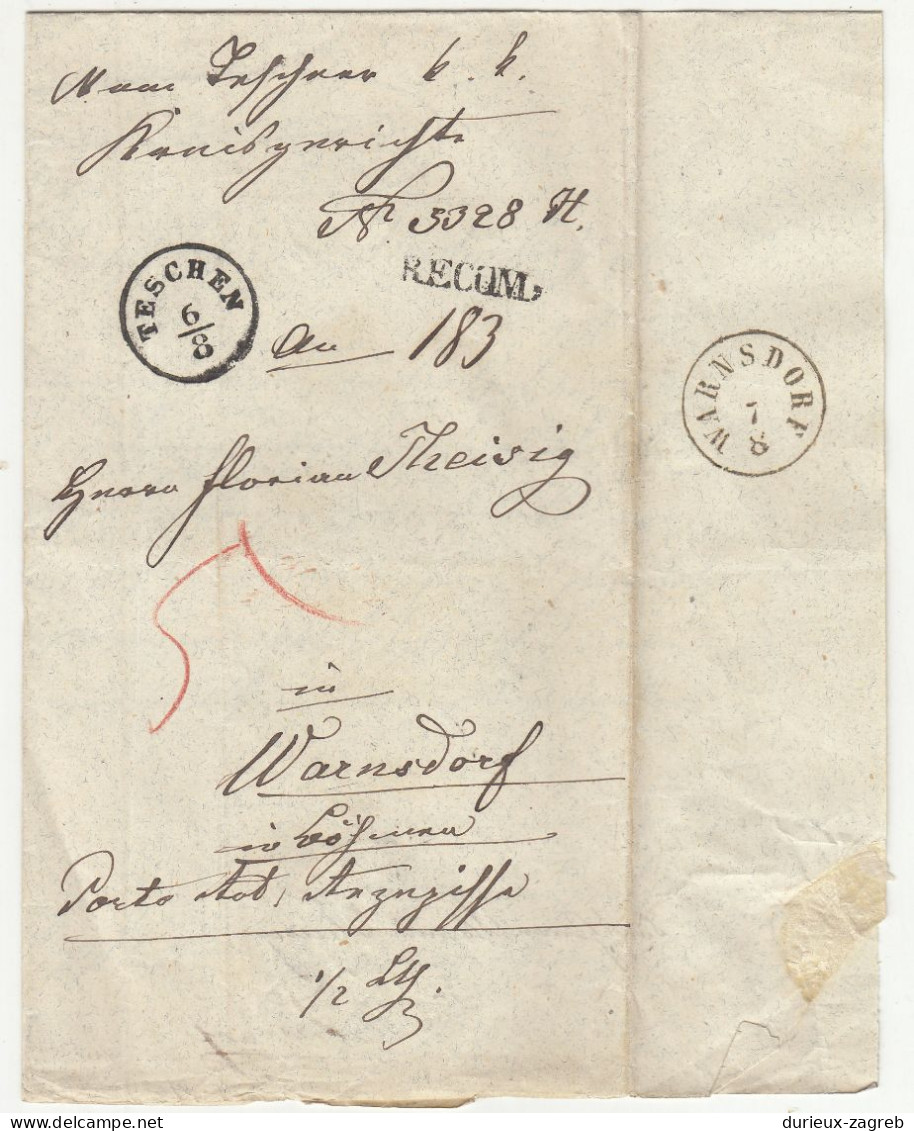 Vom Teschner k. k.
Kreisgerichte
Nr. 3328 H.
RECOM,
TESCHEN
6/8
An 183
WARNSDORF
7
8
Herrn Florian Theisig
in
Warnsdorf
in Böhmen
Porto
1/2 Lth.
delcampe.net
durieux-zagreb